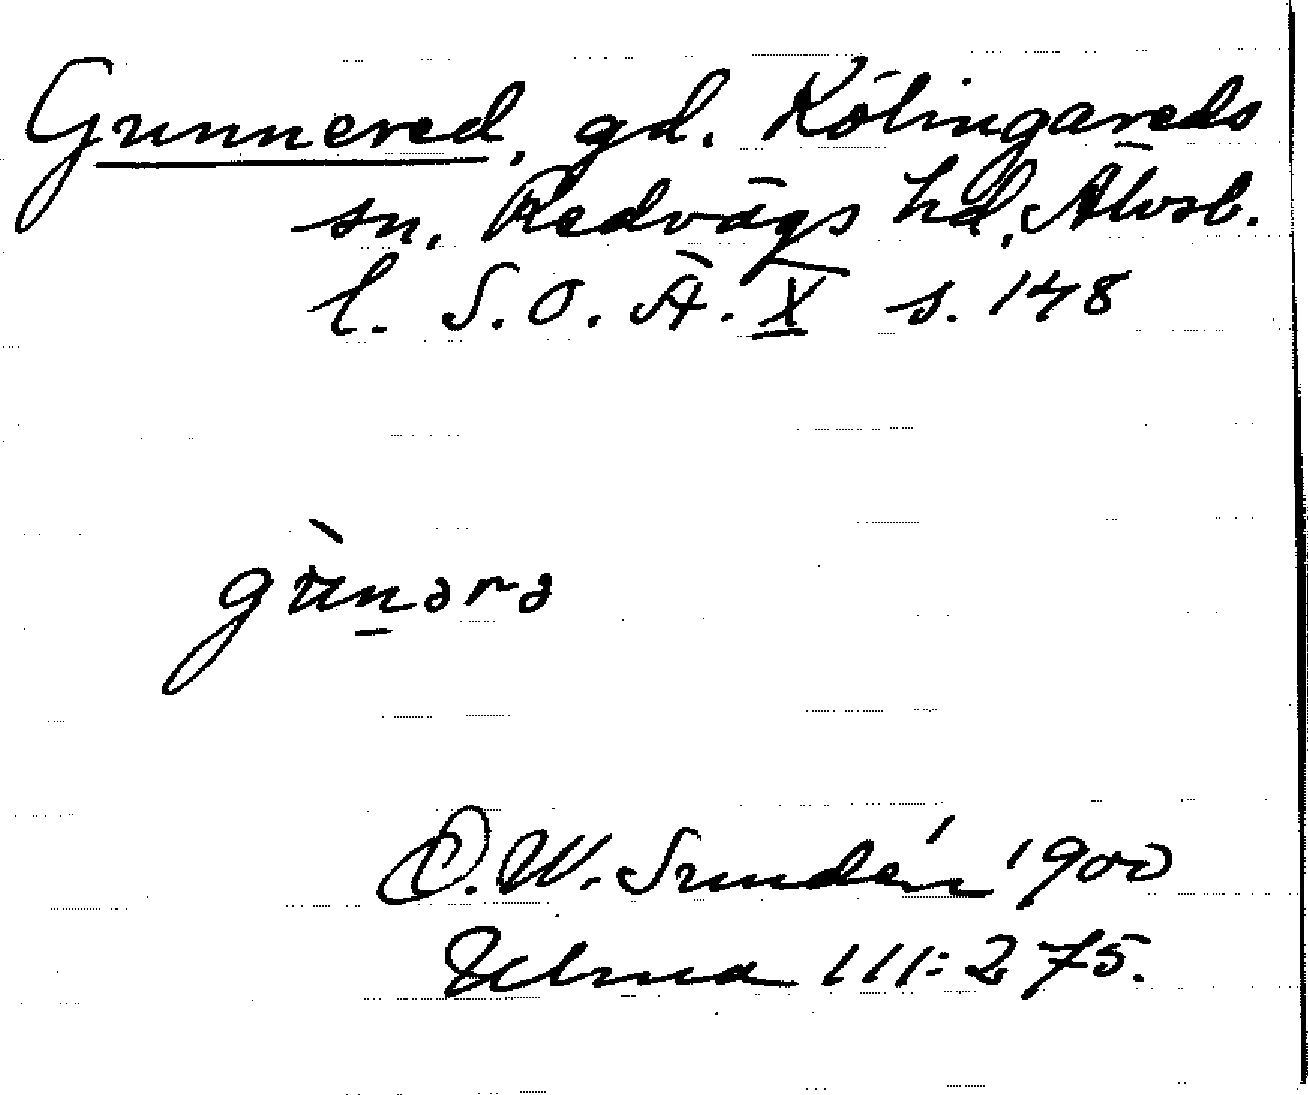 Gunnered, gd. Kölingareds
sn. Redvägs hd, Älvsb.
l. S.O.Ä. X s. 148
gùnərə
D.W. Sundén 1900
Ulma 111:275.